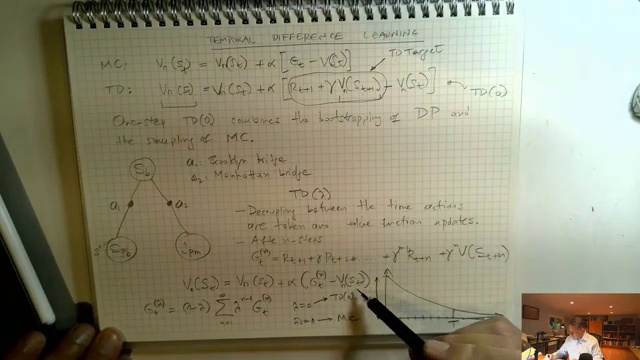 TEMPORAL DIFFERENCE LEARNING
TD Target
MC: Vπ(St) = Vπ(St) + α [Gt − V(St)]
TD: Vπ(St) = Vπ(St) + α [Rt+1 + γVπ(St+1) − Vπ(St)] TD(0)
One step TD(0) combines the bootstrapping of DP and
the sampling of MC.
a1: Brooklyn bridge
a2: Manhattan bridge
Sb
a1
a2
TD(λ)
- Decoupling between the time actions
are taken and value function updates.
- After n-steps
Gt(n) = Rt+1 + γRt+2 + ... + γ Rt+n + γn V(St+n)
Vπ(St) = Vπ(St) + α (Gt(n) − Vπ(St))
Gt(λ) = (1−λ) Σ λn-1 Gt(n)
λ=0 → TD(0)
λ=1 → MC
T